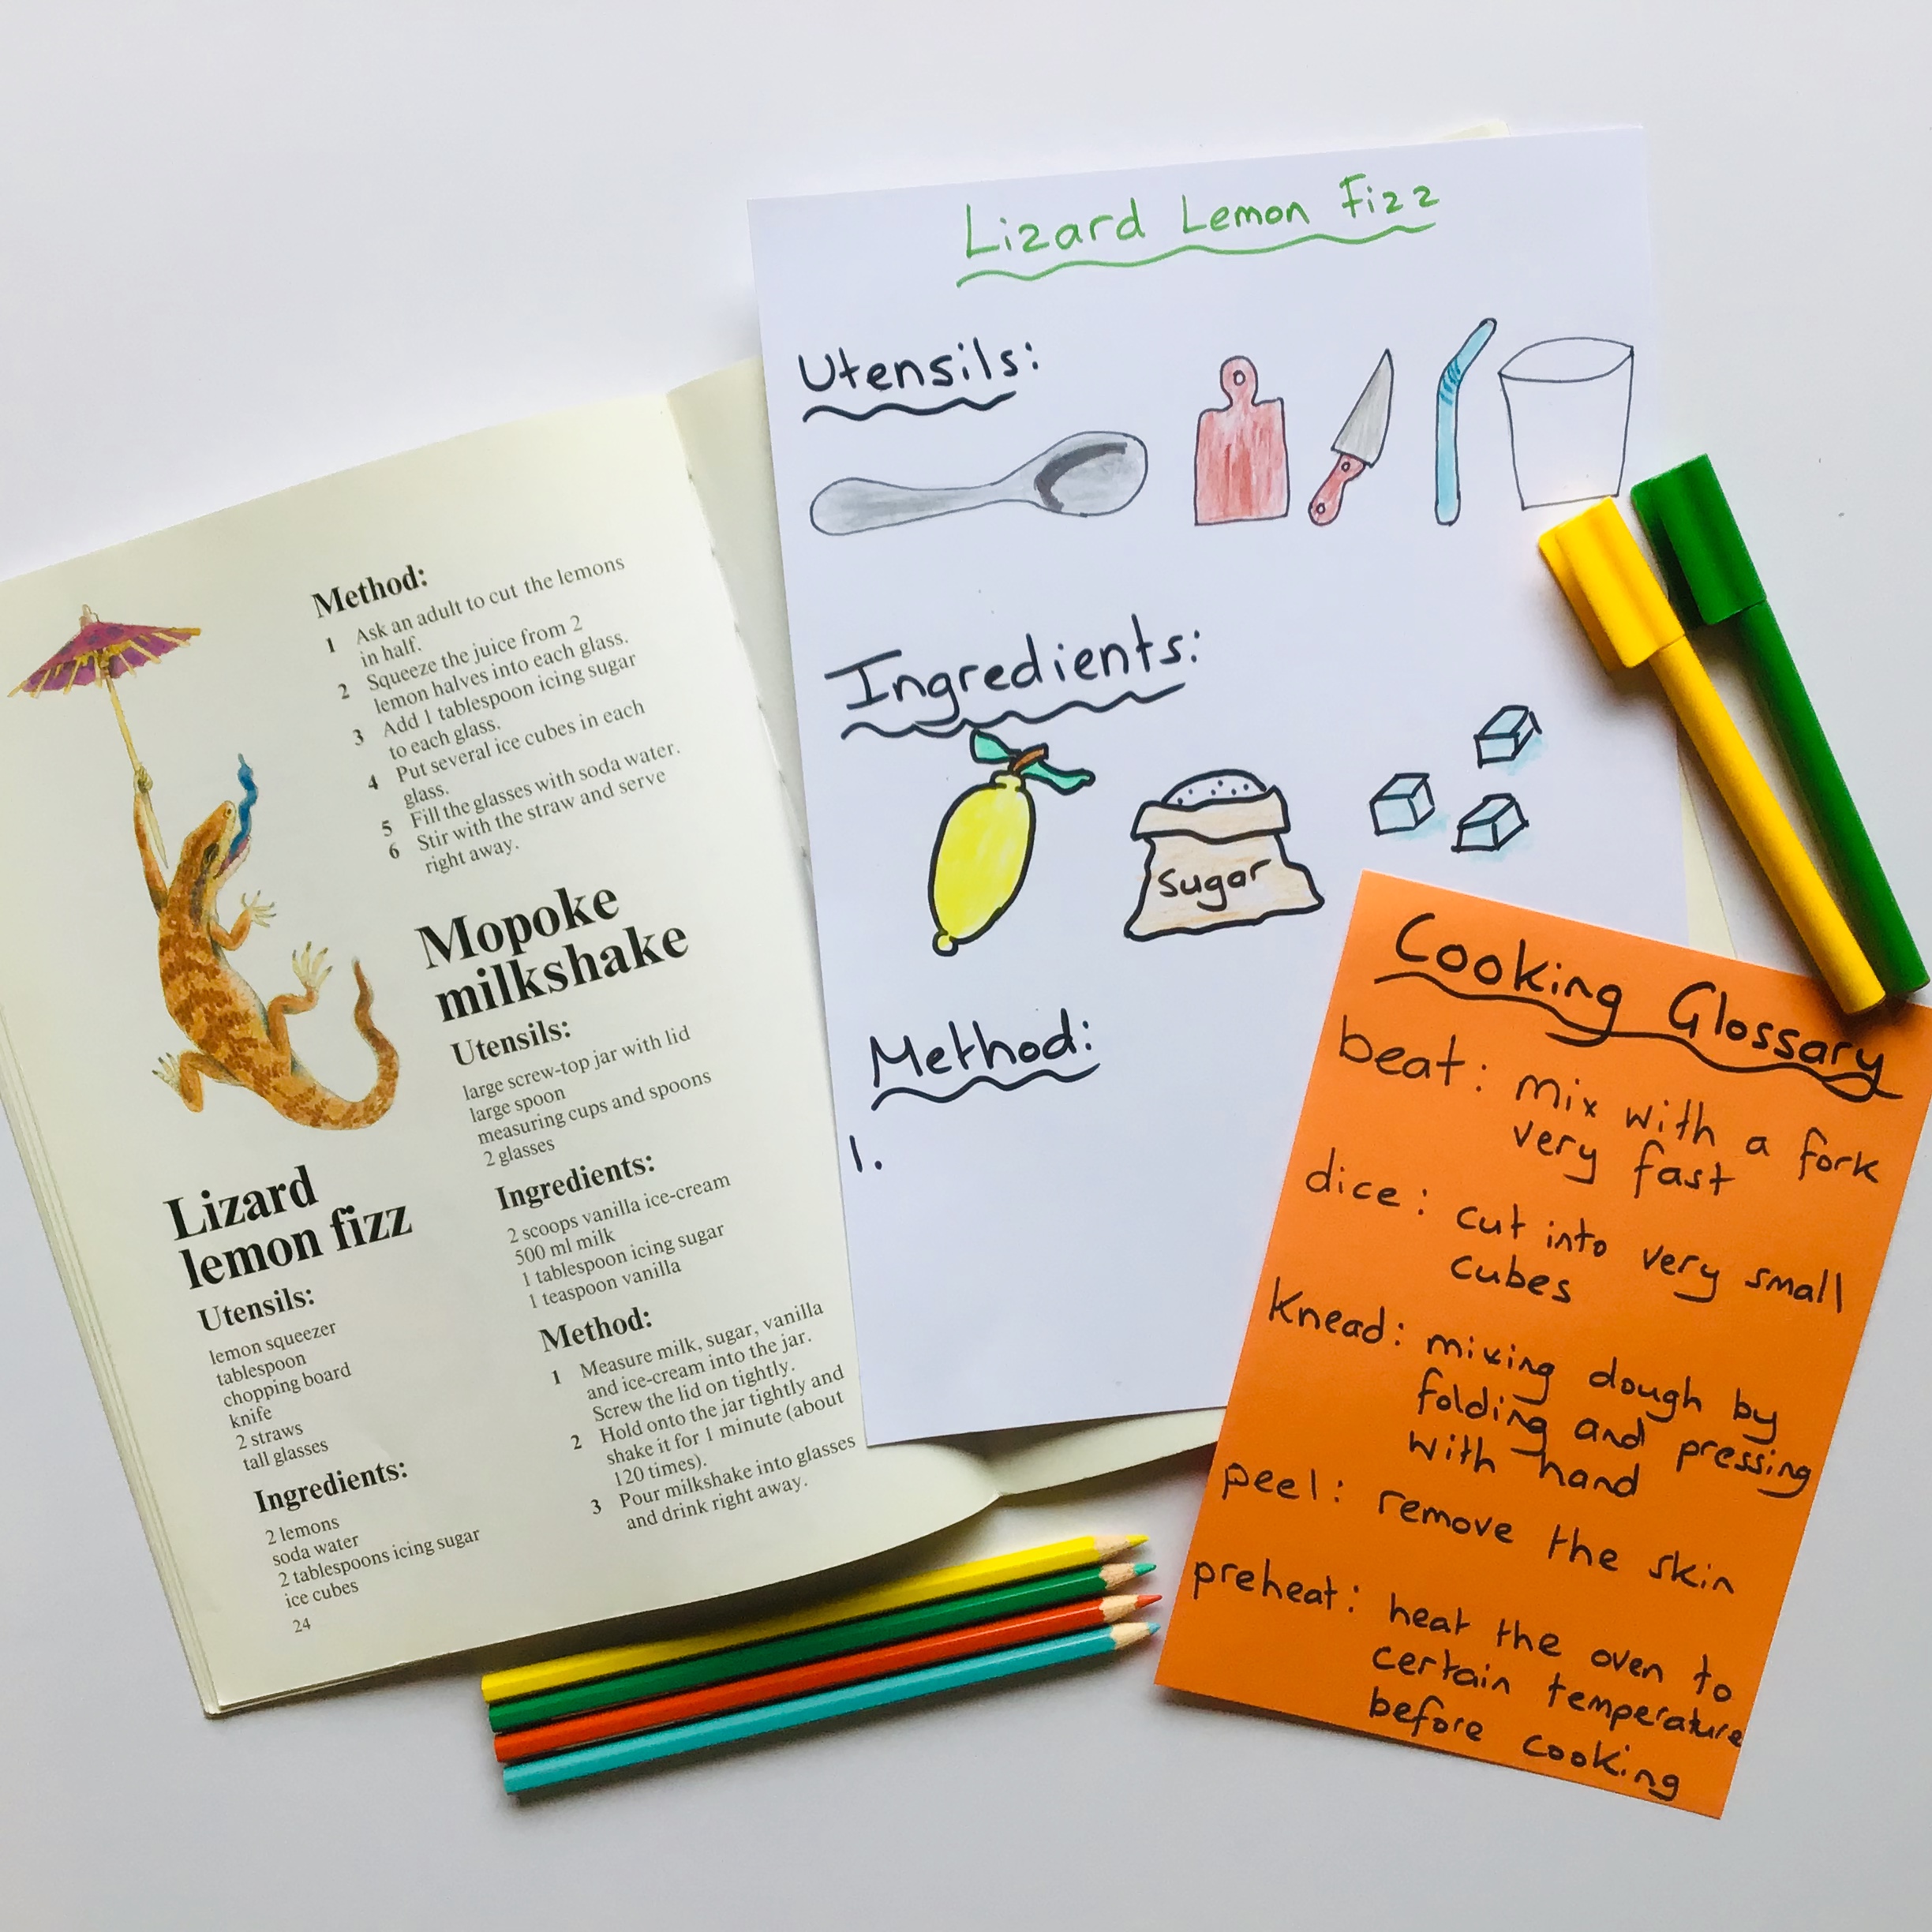 Method:
1 Ask an adult to cut the lemons
in half.
2 Squeeze the juice from 2
lemon halves into each glass.
3 Add 1 tablespoon icing sugar
to each glass.
4 Put several ice cubes in each
glass.
5 Fill the glasses with soda water.
6 Stir with the straw and serve
right away.
Lizard
lemon fizz
Utensils:
lemon squeezer
tablespoon
chopping board
knife
2 straws
tall glasses
Ingredients:
2 lemons
soda water
2 tablespoons icing sugar
ice cubes
24
Mopoke
milkshake
Utensils:
large screw-top jar with lid
large spoon
measuring cups and spoons
2 glasses
Ingredients:
2 scoops vanilla ice-cream
500 ml milk
1 tablespoon icing sugar
1 teaspoon vanilla
Method:
1 Measure milk, sugar, vanilla
and ice-cream into the jar.
Screw the lid on tightly.
2 Hold onto the jar tightly and
shake it for 1 minute (about
120 times).
3 Pour milkshake into glasses
and drink right away.
Lizard Lemon Fizz
Utensils:
Ingredients:
Sugar
Method:
1.
Cooking Glossary
beat: mix with a fork
very fast
dice: cut into very small
cubes
knead: mixing dough by
folding and pressing
with hand
peel: remove the skin
preheat: heat the oven to
certain temperature
before cooking